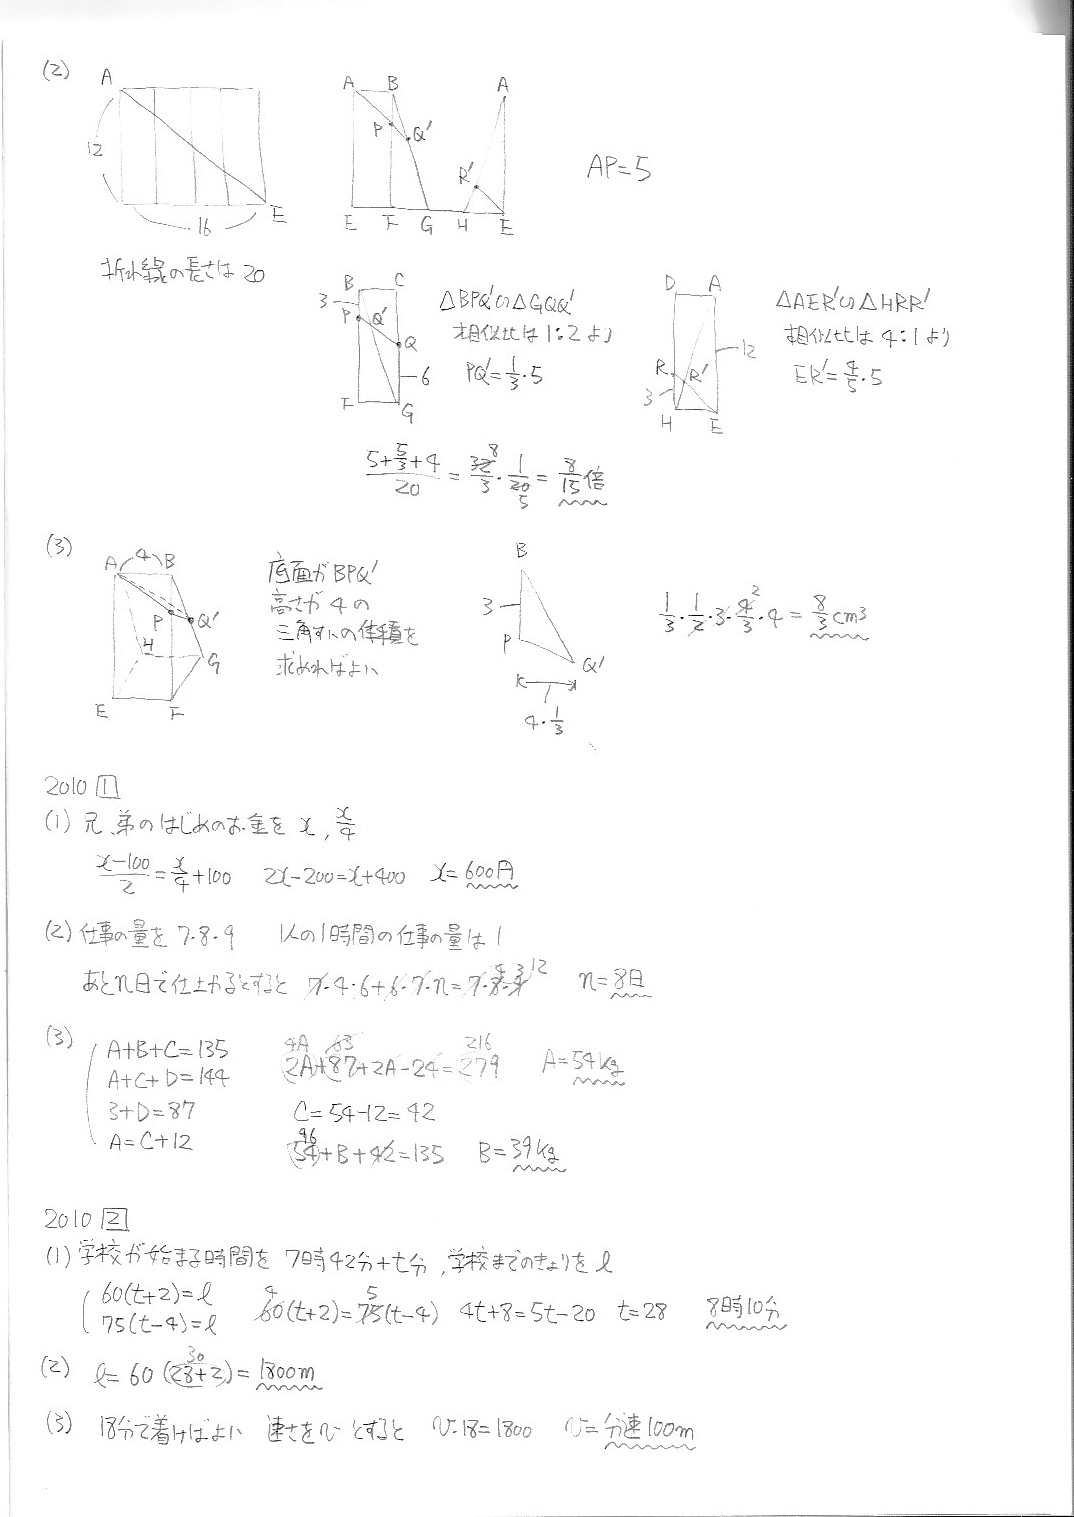 (2)
A
12
16
E
折れ線の長さは 20
A B A
P Q'
R'
E F G H E
AP=5
B C
3
P Q'
Q
6
F G
△BPQ'∽△GQQ'
相似比は 1:2 より
PQ'=1/3・5
D A
12
R R'
3
H E
△AER'∽△HRR'
相似比は 4:1 より
ER'=4/5・5
(5+5/3+4)/20 = 32/3・1/20 = 8/15倍
8
5
(3)
A 4 B
P Q'
H G
E F
底面が BPQ'
高さが 4 の
三角すいの体積を
求めればよい
B
3
P
Q'
4・1/3
1/3・1/2・3・4/3・4 = 8/3 cm3
2
2010 1
(1) 兄、弟のはじめのお金を x, x/4
(x-100)/2 = x/4+100 2x-200=x+400 x=600円
(2) 仕事の量を 7・8・9 1人の1時間の仕事の量は 1
あとn日で仕上がるとすると 7・4・6+6・7・n=7・8・9 n=8日
4 3 12
(3)
A+B+C=135
A+C+D=144
B+D=87
A=C+12
4A 63 216
2A+87+2A-24=279 A=54kg
C=54-12=42
96
54+B+42=135 B=39kg
2010 2
(1) 学校が始まる時間を 7時42分+t分, 学校までのきょりを l
60(t+2)=l
75(t-4)=l
4 5
60(t+2)=75(t-4) 4t+8=5t-20 t=28 8時10分
30
(2) l=60(28+2)=1800m
(3) 18分で着けばよい 速さをv とすると v・18=1800 v=分速100m